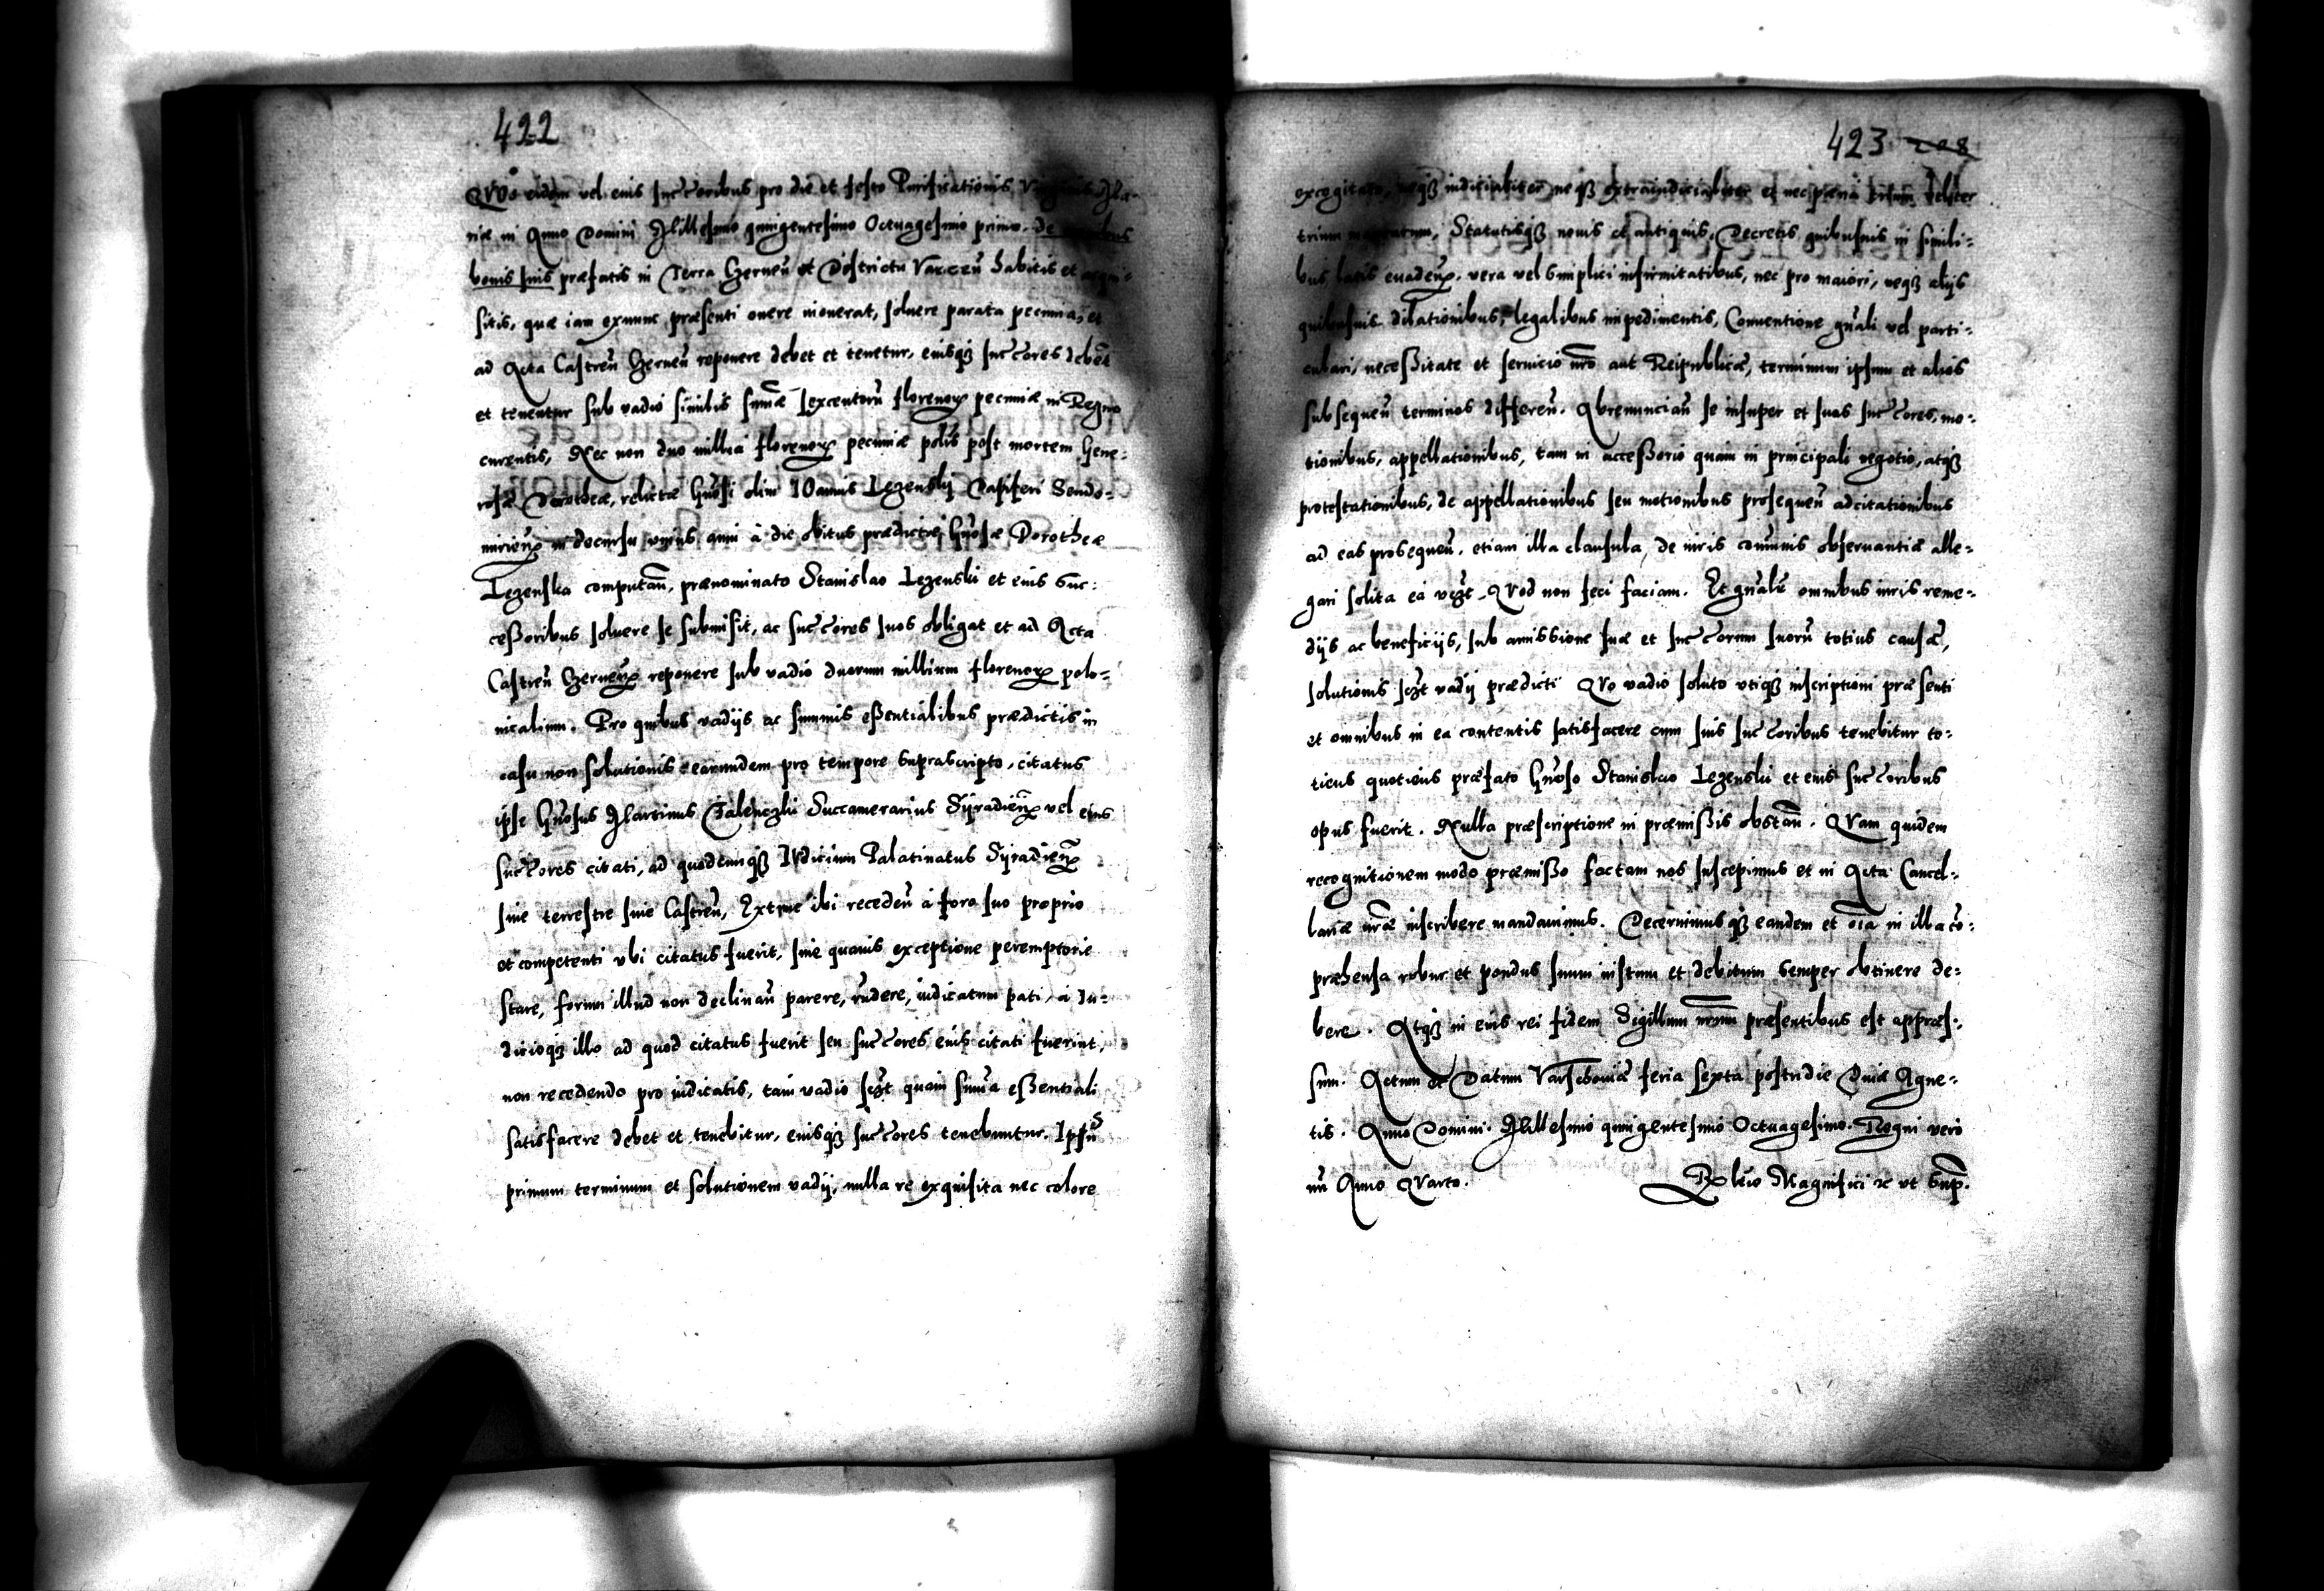 422
QVos eidem vel eius succ̄oribus pro die et festo Purificationis Virginis Ma-
riæ in Anno Domini Millesimo quingentesimo Octuagesimo primo. De
bonis suis præfatis in Terra Czerneñ et Districtu Varceñ habitis et acqui-
sitis, quæ iam exnunc præsenti onere inouerat, soluere parata pecunia, et
ad Acta Castreñ Czerneñ reponere debet et tenetur, eiusqꝫ succ̄ores debeñt
et tenentur sub vadio similis sum̄æ sexcentorū florenoꝝ pecuniæ in Regno
currentis, Nec non duo millia florenoꝝ pecuniæ polłis post mortem Gene-
rosæ Dorotheæ, relictæ Gn̄osi olim IOannis Lezenskij Dapiferi Sendo-
mirieñ in decursu vnius anni à die obitus prædictæ Gn̄osæ Dorotheæ
Lezenska computañ, prænominato Stanislao Lezenski et eius Suc-
cessoribus soluere se submisit, ac succ̄ores suos obligat et ad Acta
Castreñ Czerneñ reponere sub vadio duorum millium florenoꝝ polo-
nicalium. Pro quibus vadijs ac summis essentialibus prædictis in
casu non solutionis earundem pro tempore suprascripto, citatus
ipse Gn̄osus Martinus Zalenczki Succamerarius Syradieñ vel eius
succ̄ores citati, ad quodcunqꝫ IVdicium Palatinatus Syradieñ
siue terrestre siue Castreñ, Extunc ibi recedeñ à foro suo proprio
et competenti vbi citatus fuerit, sine quauis exceptione peremptorie
stare, forum illud non declinañ parere, rñdere, iudicatum pati, à Iu-
dicioqꝫ illo ad quod citatus fuerit seu succ̄ores eius citati fuerint,
non recedendo pro iudicatis, tam vadio scꝫt quam sum̄a essentiali
satisfacere debet et tenebitur, eiusqꝫ succ̄ores tenebuntur. Ipsūs
primum terminum et solutionem vadij, nulla re exquisita nec colore
423 208
excogitato, neqꝫ iudicialiter neqꝫ extraiudicialiter et nec pœna trium
trium marcarum, Statutisqꝫ nouis et antiquis, Decretis quibusuis in simili-
bus latis euadeñ. vera vel simplici infirmitatibus, nec pro maiori, neqꝫ alijs
quibusuis dilationibus, legalibus impedimentis, Conuentione gn̄ali vel parti-
culari, necessitate et seruicio nr̄o aut Reipublicæ, terminum ipsum et alios
subsequeñ terminos differeñ. Abrenunciañ se insuper et suos succ̄ores, mo-
tionibus, appellationibus, tam in accessorio quam in principali negotio, atqꝫ
protestationibus, de appellationibus seu motionibus prosequeñ adcitationibus
ad eas prosequeñ. etiam illa clausula, de iuris com̄unis obseruantia alle-
gari solita ea vcꝫt. QVod non feci faciam. Et gn̄alī omnibus iuris reme-
dijs ac beneficijs, sub amissione suæ et succ̄orum suorū totius causæ,
solutionis scꝫt vadij prædicti QVo vadio soluto vtiqꝫ inscriptioni præsenti
et omnibus in ea contentis satisfacere cum suis succ̄oribus tenebitur to-
ticus quoticus præfato Gn̄oso Stanislao Lezenski et eius succ̄oribus
opus fuerit. Nulla præscriptione in præmissis obstañ. QVam quidem
recognitionem modo præmisso factam nos suscepimus et in Acta Cancel-
lariæ nr̄æ inscribere mandauimus. Decernimusqꝫ eandem et oīa in illa cō-
præhensa robur et pondus suum iustum et debitum semper obtinere de-
bere. Atqꝫ in eius rei fidem Sigillum nrum præsentibus est appræs-
sum. Actum et Datum Varschouiæ feria sexta postridie Diuæ Agne-
tis. Anno Domini. Millesimo quingentesimo Octuagesimo. Regni vero
nri Anno QVarto. Rełłio Magnifici ꝛc vt supr.